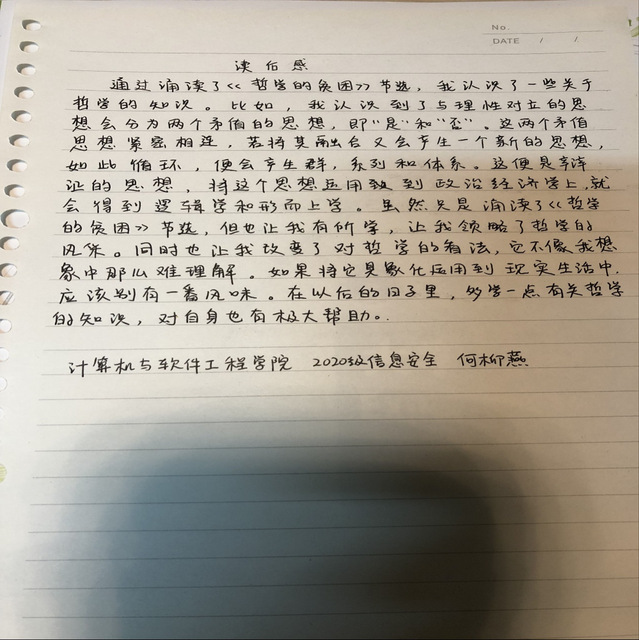 No.
DATE / /
读后感
通过诵读了《哲学的贫困》节选，我认识了一些关于
哲学的知识。比如，我认识到了与理性对立的思
想会分为两个矛盾的思想，即"是"和"否"。这两个矛盾
思想紧密相连，若将其融合又会产生一个新的思想，
如此循环，便会产生群，系列和体系。这便是辩
证的思想，将这个思想运用到政治经济学上，就
会得到逻辑学和形而上学。虽然只是诵读了《哲学
的贫困》节选，但也让我有所学，让我领略了哲学的
风采。同时也让我改变了对哲学的看法，它不像我想
象中那么难理解。如果将它具象化应用到现实生活中，
应该别有一番风味。在以后的日子里，多学一点有关哲学
的知识，对自身也有极大帮助。
计算机与软件工程学院 2020级信息安全 何柳燕